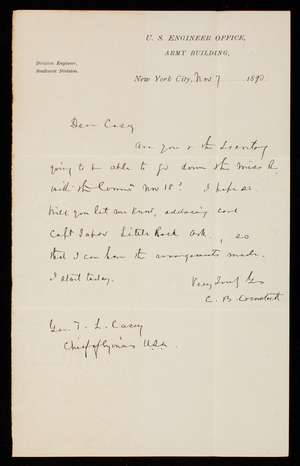 U. S. ENGINEER OFFICE,
ARMY BUILDING,
Division Engineer,
Southwest Division.
New York City, Nov 7 1890
Dear Casey
Are you & the Secretary
going to be able to go down the Miss R.
with the Comms Nov 18? I hope so.
Will you let me know, addressing care
Capt Taber Little Rock Ark., so
that I can have the arrangements made.
I start today.
Very Truly Yrs
C. B. Comstock
Gen. T. L. Casey
Chief of Engineers U.S.A.